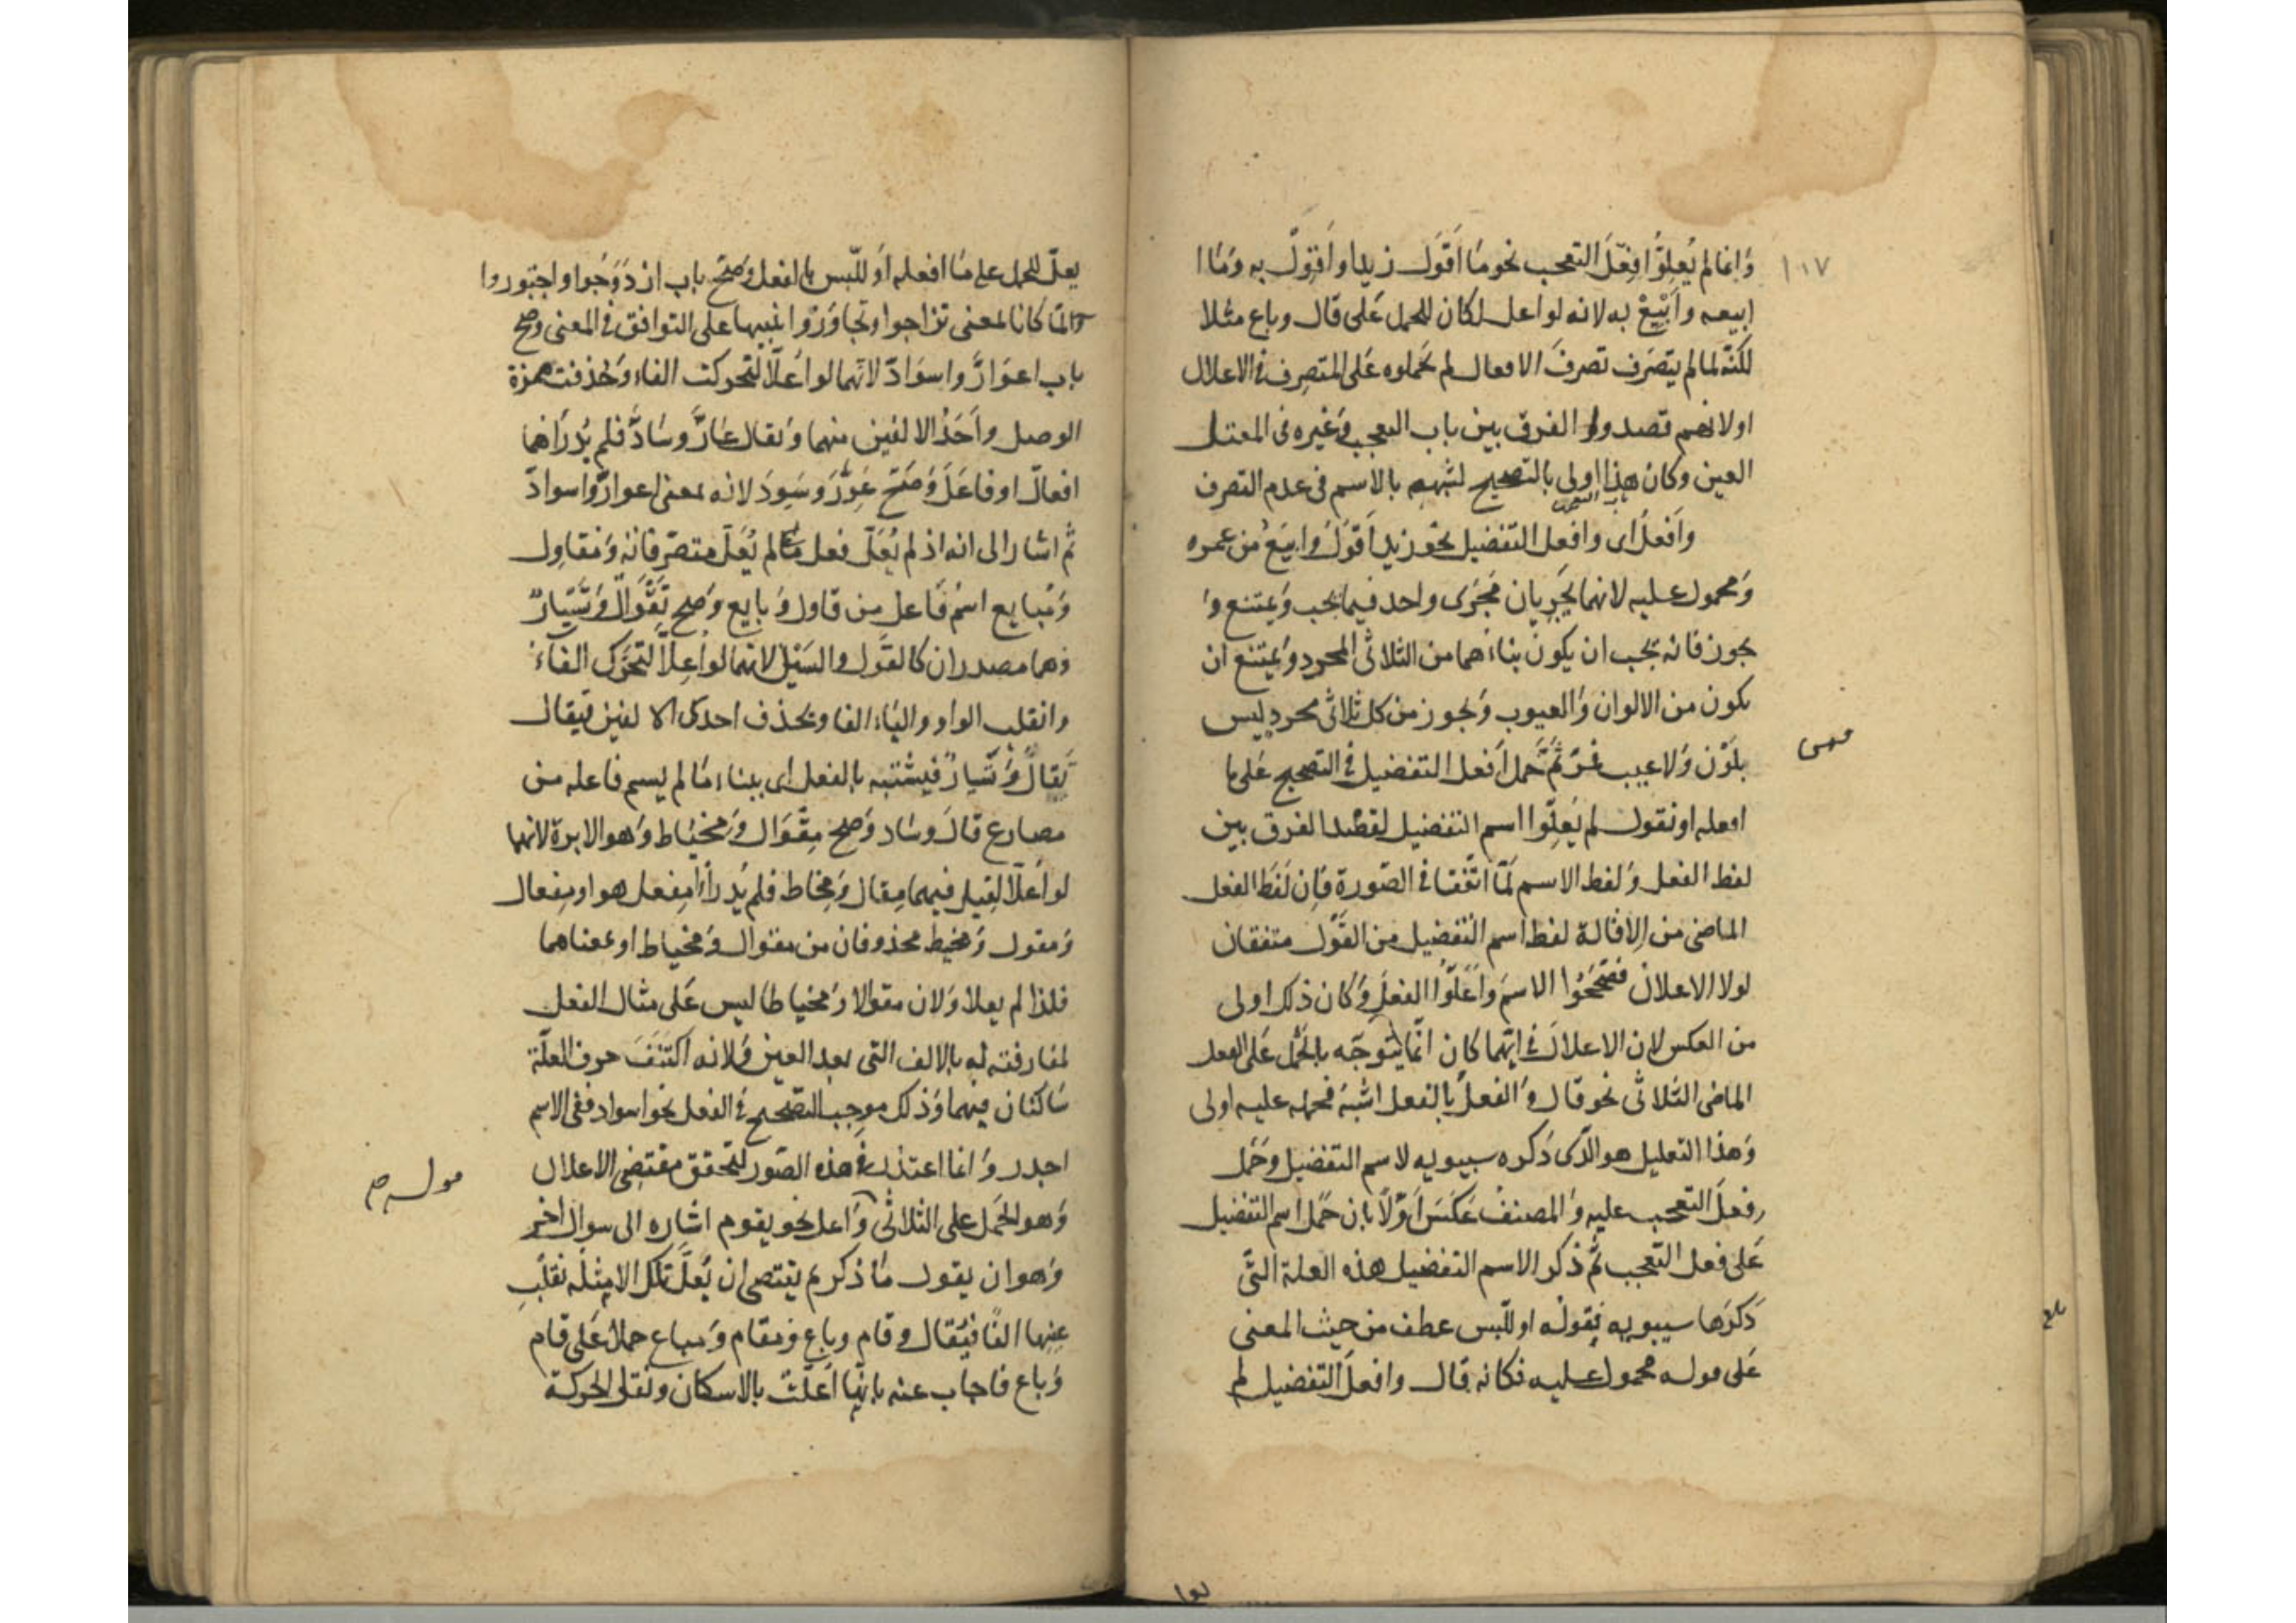 ١٠٧
وَانما لم يُعِلّوا فِعْلَ التعجب نحو مَا أَقْوَلَ زيدا وأَقْوِلْ به وَمَا ا
ابيعه وأَبْيِعْ به لانه لو اعل لكان للحمل عَلى قال وباع مثلا
لكنّه لما لم يتصَرف تصرفَ الافعال لم يَحملوه عَلى المتصرف فى الاعلال
او لانهم قصدوا الفرق بين باب التعجب وَغيره فى المعتل
العين وكان هذا اولى بالتصحيح لشبهه بالاسم فى عدم التصرف
وَافعلُ اى وافعل التفضيل نحو زيد اَقوَلُ وابيَعُ من عمرو
وَمحمول عليه لانهما يَجريان مَجرَى واحد فيما يجب وَيمتنع وَ
يجوز فانه يجب ان يكون بناءهما من الثلاثى المجرد وَيمتنع ان
يكون من الالوان وَالعيوب وَيجوز من كل ثلاثى مجرد ليس
بلَوْن وَلا عيب ثمّ حَمل اَفعل التفضيل فى التصحيح عَلى ما
افعله او نقول لم يُعِلّوا اسم التفضيل لقصْد الفرق بين
لفظ الفعل وَلفظ الاسم لمّا اتّفقا فى الصّورة فاِن لَفظ الفعل
الماضى من الاِقالة لفظ اسم التفضيل من القَوْل متفقان
لولا الاعلال فصَحّحُوا الاسمَ وَاَعَلّوُا الفعلَ وَكان ذلك اولى
من العكس لان الاعلالَ فى ايّهما كان انّما يتوَجّه بالحَمْل عَلى الفعل
الماضى الثلاثى نحو قال وَالفعلُ بالفعل اشبَهُ فحمله عليه اولى
وَهذا التعليل هو الذى ذكره سيبويه لاسم التفضيل وحَمَل
فعلَ التعجب عليه وَالمصنفُ عَكَسَ اَوّلاً بان حَمل اسم التفضيل
عَلى فعل التعجب ثمّ ذكر لاسم التفضيل هذه العلة التى
ذكرَها سيبويه بقوله او للّبس عطف من حيث المعنى
عَلى قوله محمول عليه فكانه قال وافعلُ التفضيل لم
يعلّ للحمل على مَا افعله اَو للّبس بالفعل وَصَحّ باب ازدَوَجُوا واجتَوروا
لمّا كانا بمعنى تزاجوا وتجاوَرُوا تنبيها على التوافق فى المعنى وصح
باب اعوَارّ واسوَادّ لانّهما لو اُعلاّ لتحركت الفاء وَحُذفت همزة
الوصل واَحَدُ الالفين منهما وَيقال عَارَّ وسَادَّ فلم يُدْرَ انهما
افعالّ او فاعَلَ وَصَحّ عَوِرَ وسَوِدَ لانه بمعنى اعوارّ واسوادّ
ثم اشار الى انه اذ لم يُعَلّ فعل مّا لم يُعَلّ متصرّفاته وَمقاوِل
وَمُبايع اسمُ فاعل من قاول وَبايع وَصح تَقْوَالٌ وَتَسْيَارٌ
وهما مصدران كالقَول والسَيْر لانهما لو اُعِلاّ لتحرّك الفاءُ
وانقلب الواو والياء الفا ويحذف احدى الالفين فيقال
تَقالٌ وَتَسَارٌ فيشتبه بالفعل اى ببناء مَا لم يسم فاعله من
مضارع قالَ وسَار وَصحَ مِقْوَال وَمِخيَاط وَهو الابرة لانهما
لو اُعلاّ لقيل فيهما مِقال وَمِخاط فلم يُدرَ أَمِفعل هو او مِفعال
وَمقول وَمخيط محذوفان من مقوال وَمخياط او بمعناهما
فلذا لم يعلا وَلان مقوالا وَمخياطا ليس عَلى مثال الفعل
لمفارقته له بالالف التى بعد العين وَلانه اكتَنَفَ حرف العلّة
سَاكنان فيهما وَذلك موجب التصحيح فى الفعل نحو اسواد ففى الاسم
اجدر وَانما اعتذر فى هذه الصّور لتحقق مقتضِى الاعلال
وَهو الحَمل على الثلاثى وَاعل نحو يقوم اشاره الى سوال اخر
وَهو ان يقول مَا ذكرتم يقتضى ان يُعَلّ تلك الامثله بقلب
عينِها الفًا فيُقال قام وباع وَمقام وَمباع حملا عَلى قام
وَباع فاجاب عنه بانّها اُعلّت بالاسكان ونَقلِ الحركة